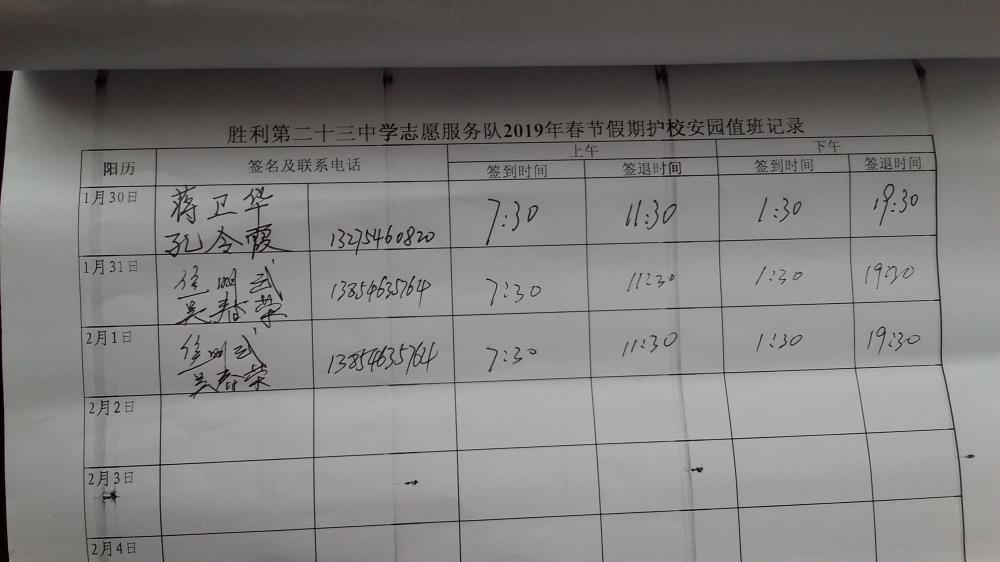 胜利第二十三中学志愿服务队2019年春节假期护校安园值班记录
阳历 签名及联系电话 上午 下午
签到时间 签退时间 签到时间 签退时间
1月30日 蒋卫华 7:30 11:30 1:30 19:30
孔令霞 13275460820
1月31日 徐明武 13854635764 7:30 11:30 1:30 19:30
吴春荣
2月1日 徐明武 13854635764 7:30 11:30 1:30 19:30
吴春荣
2月2日
2月3日
2月4日